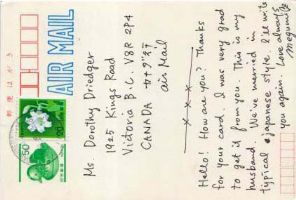 郵便はがき
AIR MAIL
50
Ms Dorothy Driedger
1925 Kings Road
Victoria B.C. V8R 2P4
CANADA カナダ行
air Mail
Hello! How are you? Thanks
for your card. I was very grad
to get it from you. This is my
husband. We've married in
typical Japanese style. I'll write
you again. Love always
Megumi